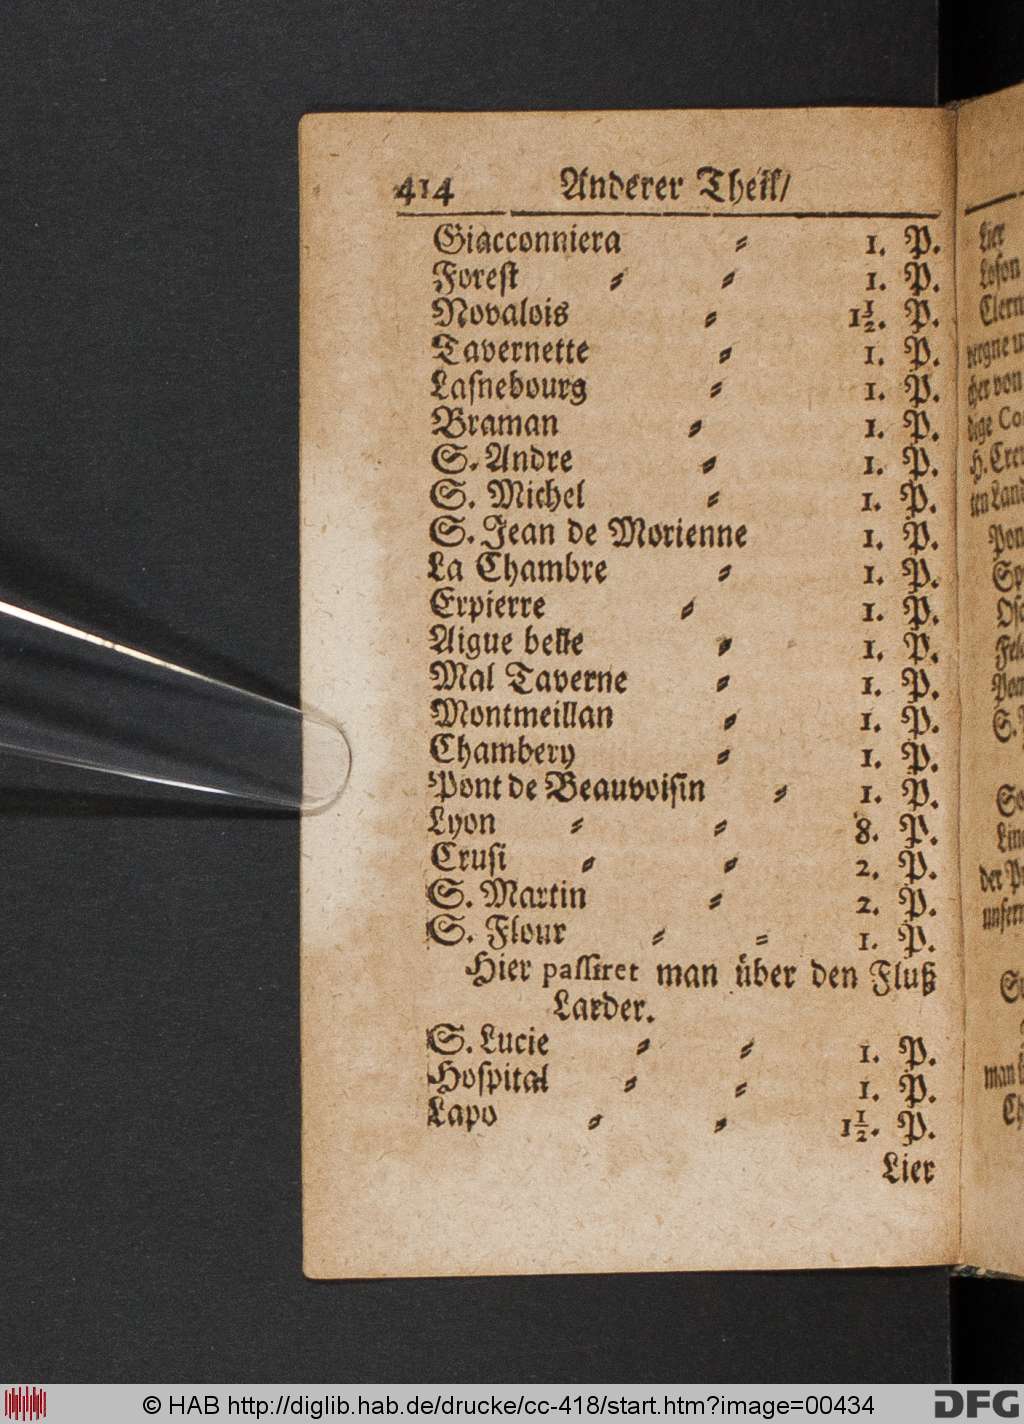 414 Anderer Theil/
Giacconniera ⸗ 1. P.
Forest ⸗ ⸗ 1. P.
Novalois ⸗ 1½. P.
Tavernette ⸗ 1. P.
Laſnebourg ⸗ 1. P.
Braman ⸗ 1. P.
S. Andre ⸗ 1. P.
S. Michel ⸗ 1. P.
S. Jean de Morienne 1. P.
La Chambre ⸗ 1. P.
Erpierre ⸗ 1. P.
Aigue belle ⸗ 1. P.
Mal Taverne ⸗ 1. P.
Montmeillan ⸗ 1. P.
Chambery ⸗ 1. P.
Pont de Beauvoiſin ⸗ 1. P.
Lyon ⸗ ⸗ 8. P.
Cruſi ⸗ ⸗ 2. P.
S. Martin ⸗ 2. P.
S. Flour ⸗ ⸗ 1. P.
Hier paſſiret man über den Fluß
Larder.
S. Lucie ⸗ ⸗ 1. P.
Hoſpital ⸗ ⸗ 1. P.
Lapo ⸗ ⸗ 1½. P.
Lier
Lier
Loſon
© HAB http://diglib.hab.de/drucke/cc-418/start.htm?image=00434
DFG